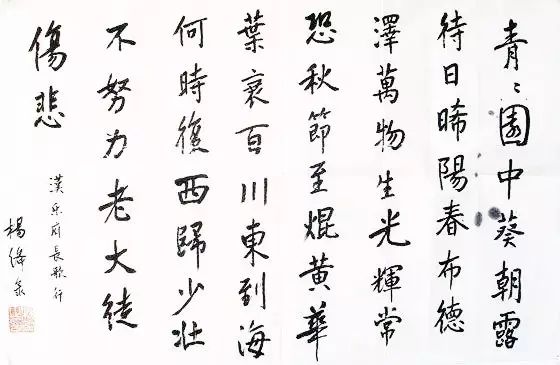 青〻園中葵朝露
待日晞陽春布德
澤萬物生光輝常
恐秋節至焜黃華
葉衰百川東到海
何時復西歸少壯
不努力老大徒
傷悲
漢乐府長歌行
楊絳录